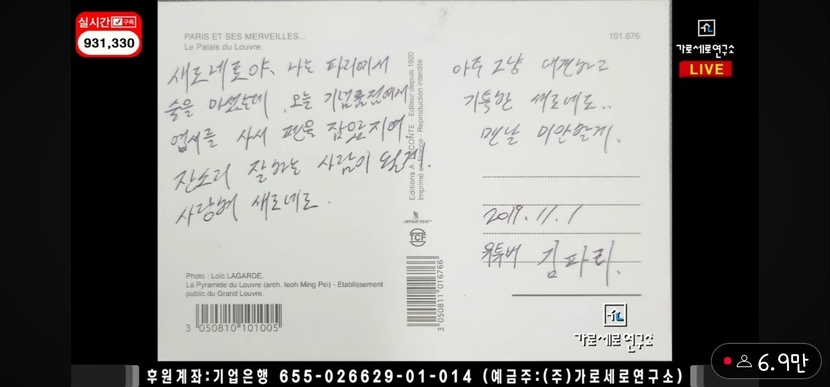 실시간 구독
931,330
PARIS ET SES MERVEILLES...
Le Palais du Louvre.
101.676
가로세로연구소
LIVE
새로네로야, 나는 파리에서
술을 마셨는데, 오늘 기념품점에서
엽서를 사서 펜을 잡았지여
잔소리 잘하는 사람이 될게.
사랑해 새로네로
아주 그냥 대견하고
기특한 새로네로..
맨날 미안할게.
2019. 11. 1
유튜버 김파리.
Editions A. LECONTE - Editeur depuis 1920
Imprimé en France - Reproduction interdite
Photo : Loïc LAGARDE.
La Pyramide du Louvre (arch. Ieoh Ming Pei) - Etablissement
public du Grand Louvre.
3 050810 101005
3 050811 016766
가로세로연구소
6.9만
후원계좌:기업은행 655-026629-01-014 (예금주:(주)가로세로연구소)